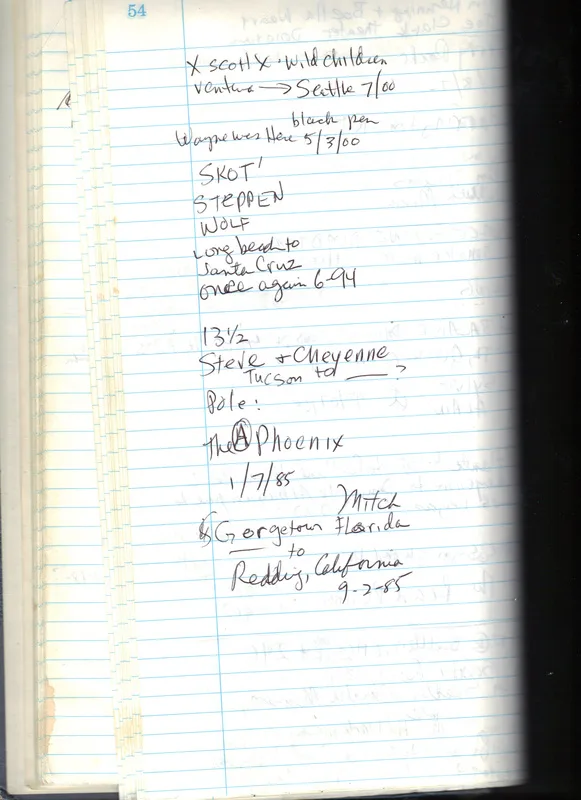 54
X scott X · Wild children
ventura → Seattle 7/00
black pen
Wayne was Here 5/3/00
SKOT'
STEPPEN
WOLF
Long beach to
Santa Cruz
once again 6-94
13 1/2
Steve + Cheyenne
Tucson to ___ ?
Pole:
The Ⓐ Phoenix
1/7/85
Mitch
Gorgetown Florida
to
Redding, California
9-2-85